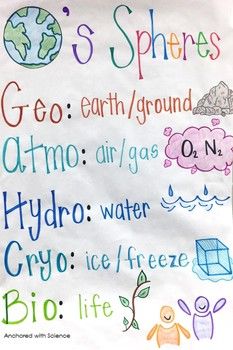 's Spheres
Geo: earth/ground
Atmo: air/gas O₂ N₂
Hydro: water
Cryo: ice/freeze
Bio: life
Anchored with Science